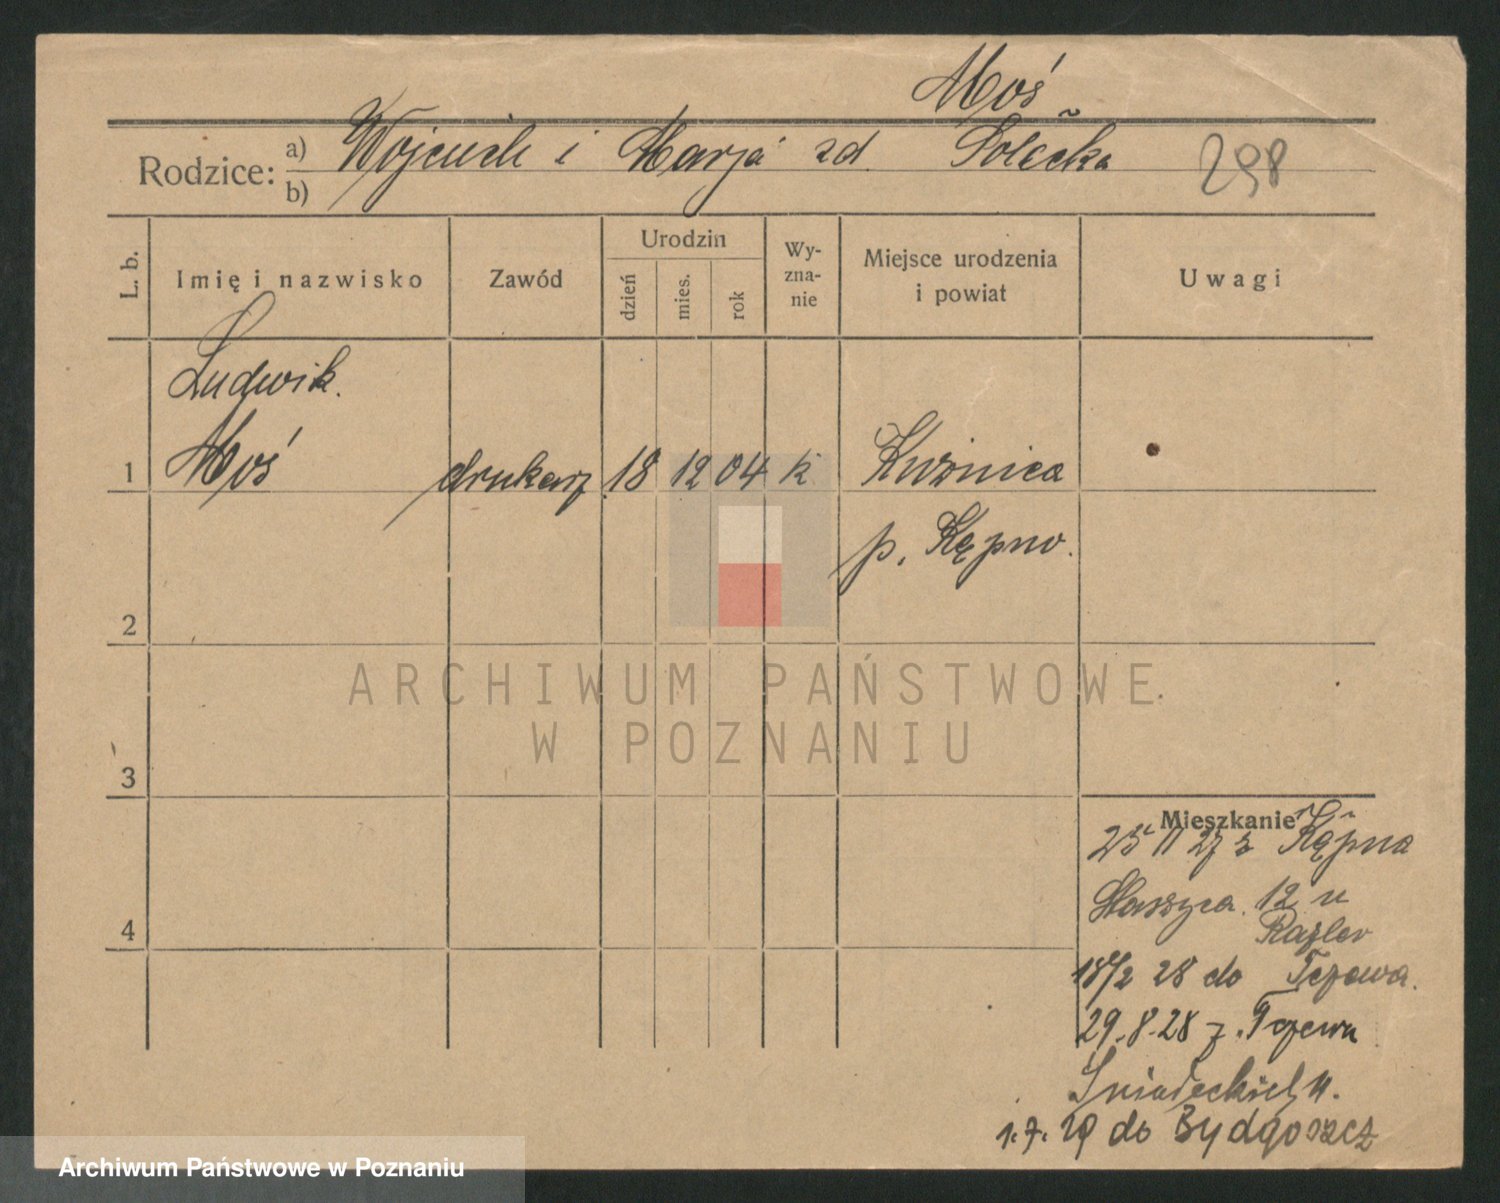 Moś
Rodzice: a) Wojciech i Marja zd. Solecka
b)
298
L. b.
Imię i nazwisko
Zawód
Urodzin
dzień
mies.
rok
Wy-
zna-
nie
Miejsce urodzenia
i powiat
Uwagi
Ludwik.
1 Moś drukarz 18 12 04 k Kuźnica
p. Kępno.
2
ARCHIWUM PAŃSTWOWE
W POZNANIU
3
Mieszkanie
25 11 27 z Kępna
Staszyca. 12 u
4
18/2 28 do Tczewa.
29.8.28 z. Tczewa
Śniadeckich 11.
1.7.29 do Bydgoszcz
Archiwum Państwowe w Poznaniu